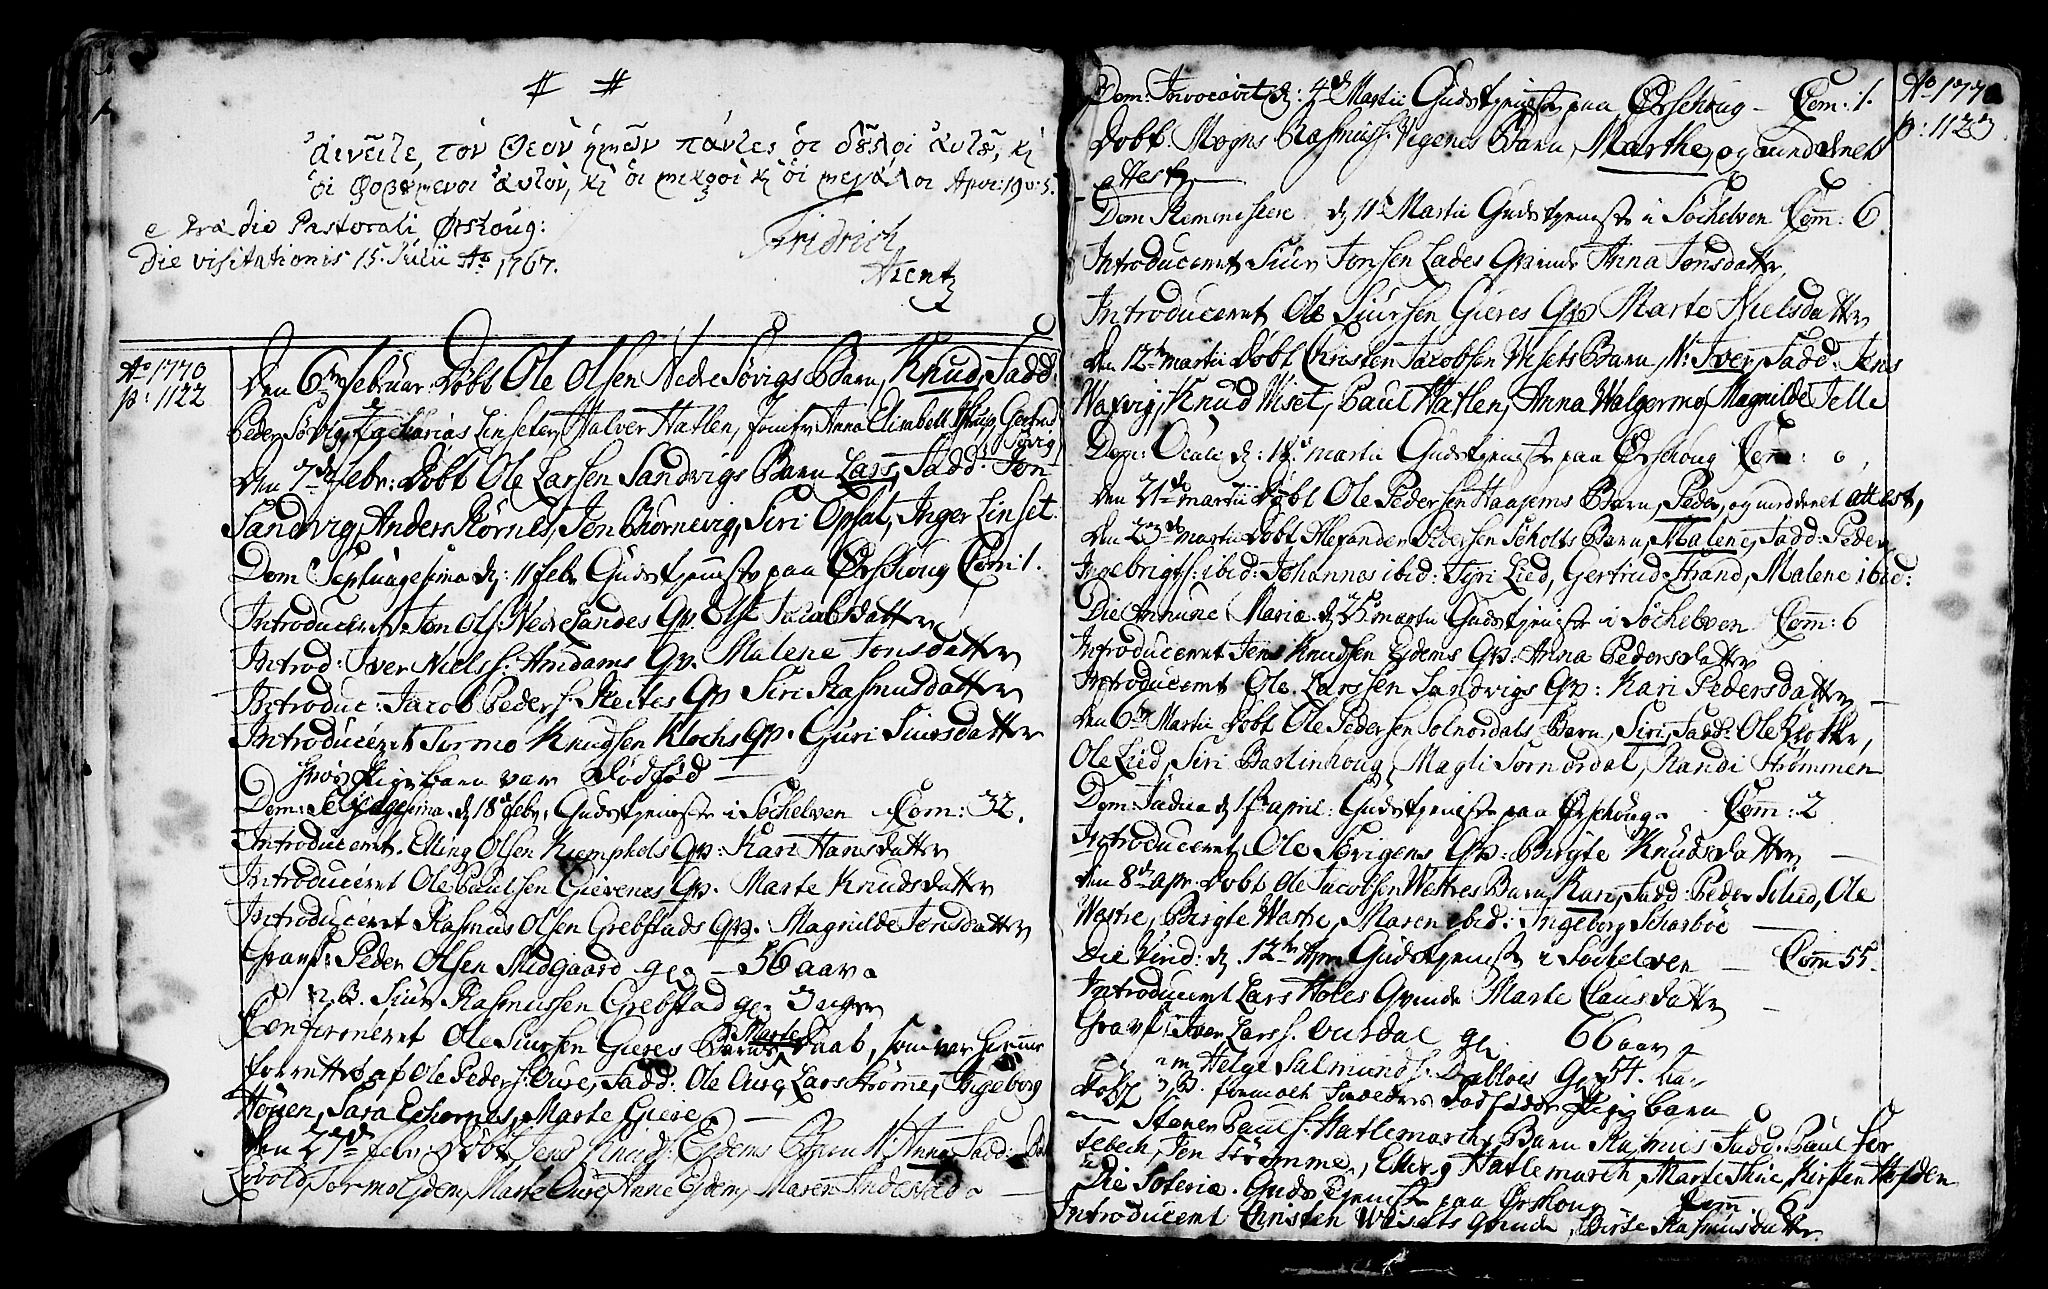 # #
Αἰνεῖτε, τὸν Θεὸν ἡμῶν πάντες οἱ δοῦλοι αὐτοῦ, κὶ
οἱ φοβούμενοι αὐτόν, κὶ οἱ μικροὶ κὶ οἱ μεγάλοι Apoc: 19 v: 5.
e Prædio Pastorali Ørskoug:
Die visitationis 15. Julii Ao 1767.
Fridrich
Arentz
Ao 1770
p: 1122
Den 6te Februar Døbt Ole Olsen Nedre Søvigs Barn, Knud, Fadd:
Peder Søvig, Zacharias Linseter, Halvor Hatlen, Jomfr Anna Elisabeth Gertrud
Søvig
Den 7de Febr: Døbt Ole Larsen Sandvigs Barn Lars, Fadd: Jon
Sandvig, Anders Kornes, Jen Biørnevig, Siri Opsal, Inger Linset.
Dom Septuagesima d: 11 Febr Gudstjeneste paa Ørschoug Com 1.
Introduceret Jon Ols: Nedre Landes Qv. Else Jacobsdatter
Introd: Iver Niels: Amdams Qv. Malene Jonsdatter
Introduc: Jacob Peders: Skeites Qv Siri Rasmusdatter
Introduceret Tormo Knudsen Klochs Qv. Guri Siursdatter
hvis Pigebarn var Dødfød
Dom: Sexagesima d 18de Febr. Gudstjeneste i Søchelven Com: 32.
Introduceret. Elling Olsen Kiemphols Qv: Kari Hansdatter
Introduceret Ole Paulsen Gievenes Qv. Marte Knudsdatter
Introduceret Rasmus Olsen Grebstads Qv. Magnilde Jonsdatter
Gravf: Peder Olsen Midgaard gl: 56 aar
n. B. Siur Rasmussen Grebstad gl 3 uger
Confirmeret Ole Siursen Gieres Barns Marte Daab, som var hjemme
forrettet af Ole Peders: Oure, Fadd: Ole Oure, Lars Strømme, Ingeborg
Houen, Sara Echornes, Marte Giere
Den 27de Febr Døbt Jens Knuds: Egdems Barn N: Anne Fadd:
Løvold, Tormo Egdem, Marte Oure, Anne Egdem, Maren Andestad
Ao 1770
p: 1123
Dom: Invocavit d: 4de Martii Gudstjeneste paa Ørschoug - Com: 1.
Døbt Mogns Rasmuss. Vegenes Barn, Marthe, og meddelnet
attest
Dom Reminiscere d 11te Martii Gudstjeneste i Søchelven Com: 6
Introduceret Siur Jonsen Lades Qvinde Anna Jonsdatter,
Introduceret Ole Siursen Gieres Qv Marte Nielsdatter
Den 12te martii Døbt Christen Jacobsen Visets Barn, N: Iver, Fadd: Jens
Waxvig, Knud Wiset, Paul Hatlen, Anna Walgermo, Magnilde Telle
Dom: Oculi d: 18de martii Gudstjeneste paa Ørschoug Com: 0,
Den 21de martii Døbt Ole Pedersen Haasems Barn, Peder, og meddelet attest,
Den 23de martii Døbt Alexander Pedersen Scholts Barn, Malene, Fadd: Peder
Ingebrigts: ibid: Johannes ibid: Syri Lied, Gertrud Strand, Malene ibid:
Die Annunc Mariæ d 25 martii Gudstjeneste i Søchelven Com: 6
Introduceret Jens Knudsen Egdems Qv: Anna Pedersdatter
Introduceret Ole Larssen Sandvigs Qv: Kari Pedersdatter
Den 6te Martii Døbt Ole Pedersen Solnordals Barn, Siri, Fadd: Ole Klocke,
Ole Lied, Siri Bastinhoug, Magli Sornordal, Randi Strømmen
Dom: Judica d 1ste april: Gudstjeneste paa Ørschoug. Com: 2
Introduceret Ole Søvigens Qv: Birgte Knudsdatter
Den 8de apr. Døbt Ole Jacobsen Westres Barn, Karn, Fadd: Peder Solied, Ole
Westre, Birgte Wastre, Maren ibid: Ingeborg Scharbøe
Die Virid: d 12te Apr Gudstjeneste i Søchelven Com 55.
Introduceret Lars Holes Qvinde Marte Clausdatter
Gravf: Iver Larss. Ourdal gl. 66 aar
m Helge Salmunds: Dablois Gl 54.
n. B. Dødfødde Pigebarn
Døbt Stener Pauls. Hatlemarchs Barn Rasmus Fadd. Paul Tor
Tebech, Jen Strømme, Elling Hatlemarch, Marte Thue, Kirsten Hofden
Die Soteriæ. Gudstjeneste paa Ørskoug Com 6
Introduceret Christen Wisets qvinde, Birte Rasmusdatter.